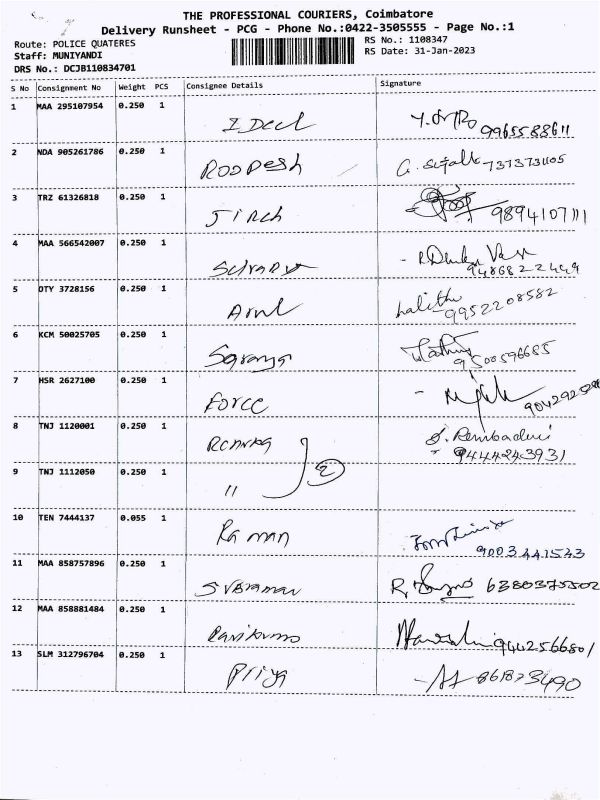 THE PROFESSIONAL COURIERS, Coimbatore
Delivery Runsheet - PCG - Phone No.:0422-3505555 - Page No.:1
Route: POLICE QUATERES
RS No.: 1108347
Staff: MUNIYANDI
RS Date: 31-Jan-2023
DRS No.: DCJB110834701
S No Consignment No Weight PCS Consignee Details Signature
1 MAA 295107954 0.250 1
9965588611
2 NDA 905261786 0.250 1 ROOPESH
7373731105
3 TRZ 61326818 0.250 1
9894107111
4 MAA 566542007 0.250 1
9486822449
5 OTY 3728156 0.250 1 Arul Lalitha
9952208582
6 KCM 50025705 0.250 1 Saranya
9500596685
7 HSR 2627100 0.250 1 FORCE
8 TNJ 1120001 0.250 1
9444243931
9 TNJ 1112050 0.250 1 11 2
10 TEN 7444137 0.055 1 Raman
9003441543
11 MAA 858757896 0.250 1 6380375502
12 MAA 858881484 0.250 1 9442566801
13 SLM 312796704 0.250 1 Priya 861873490